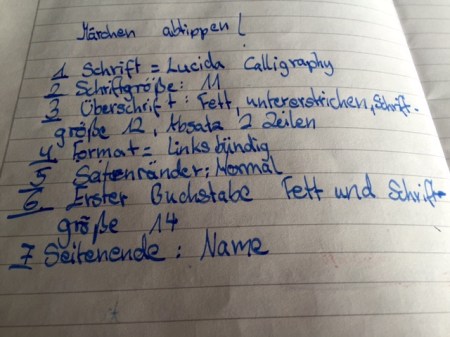 Märchen abtippen!
1 Schrift = Lucida Calligraphy
2 Schriftgröße: 11
3 Überschrift: Fett, unterstrichen, Schrift-
größe 12, Absatz 2 Zeilen
4 Format = Linksbündig
5 Seitenränder: Normal
6. Erster Buchstabe Fett und Schrift-
größe 14
7 Seitenende: Name